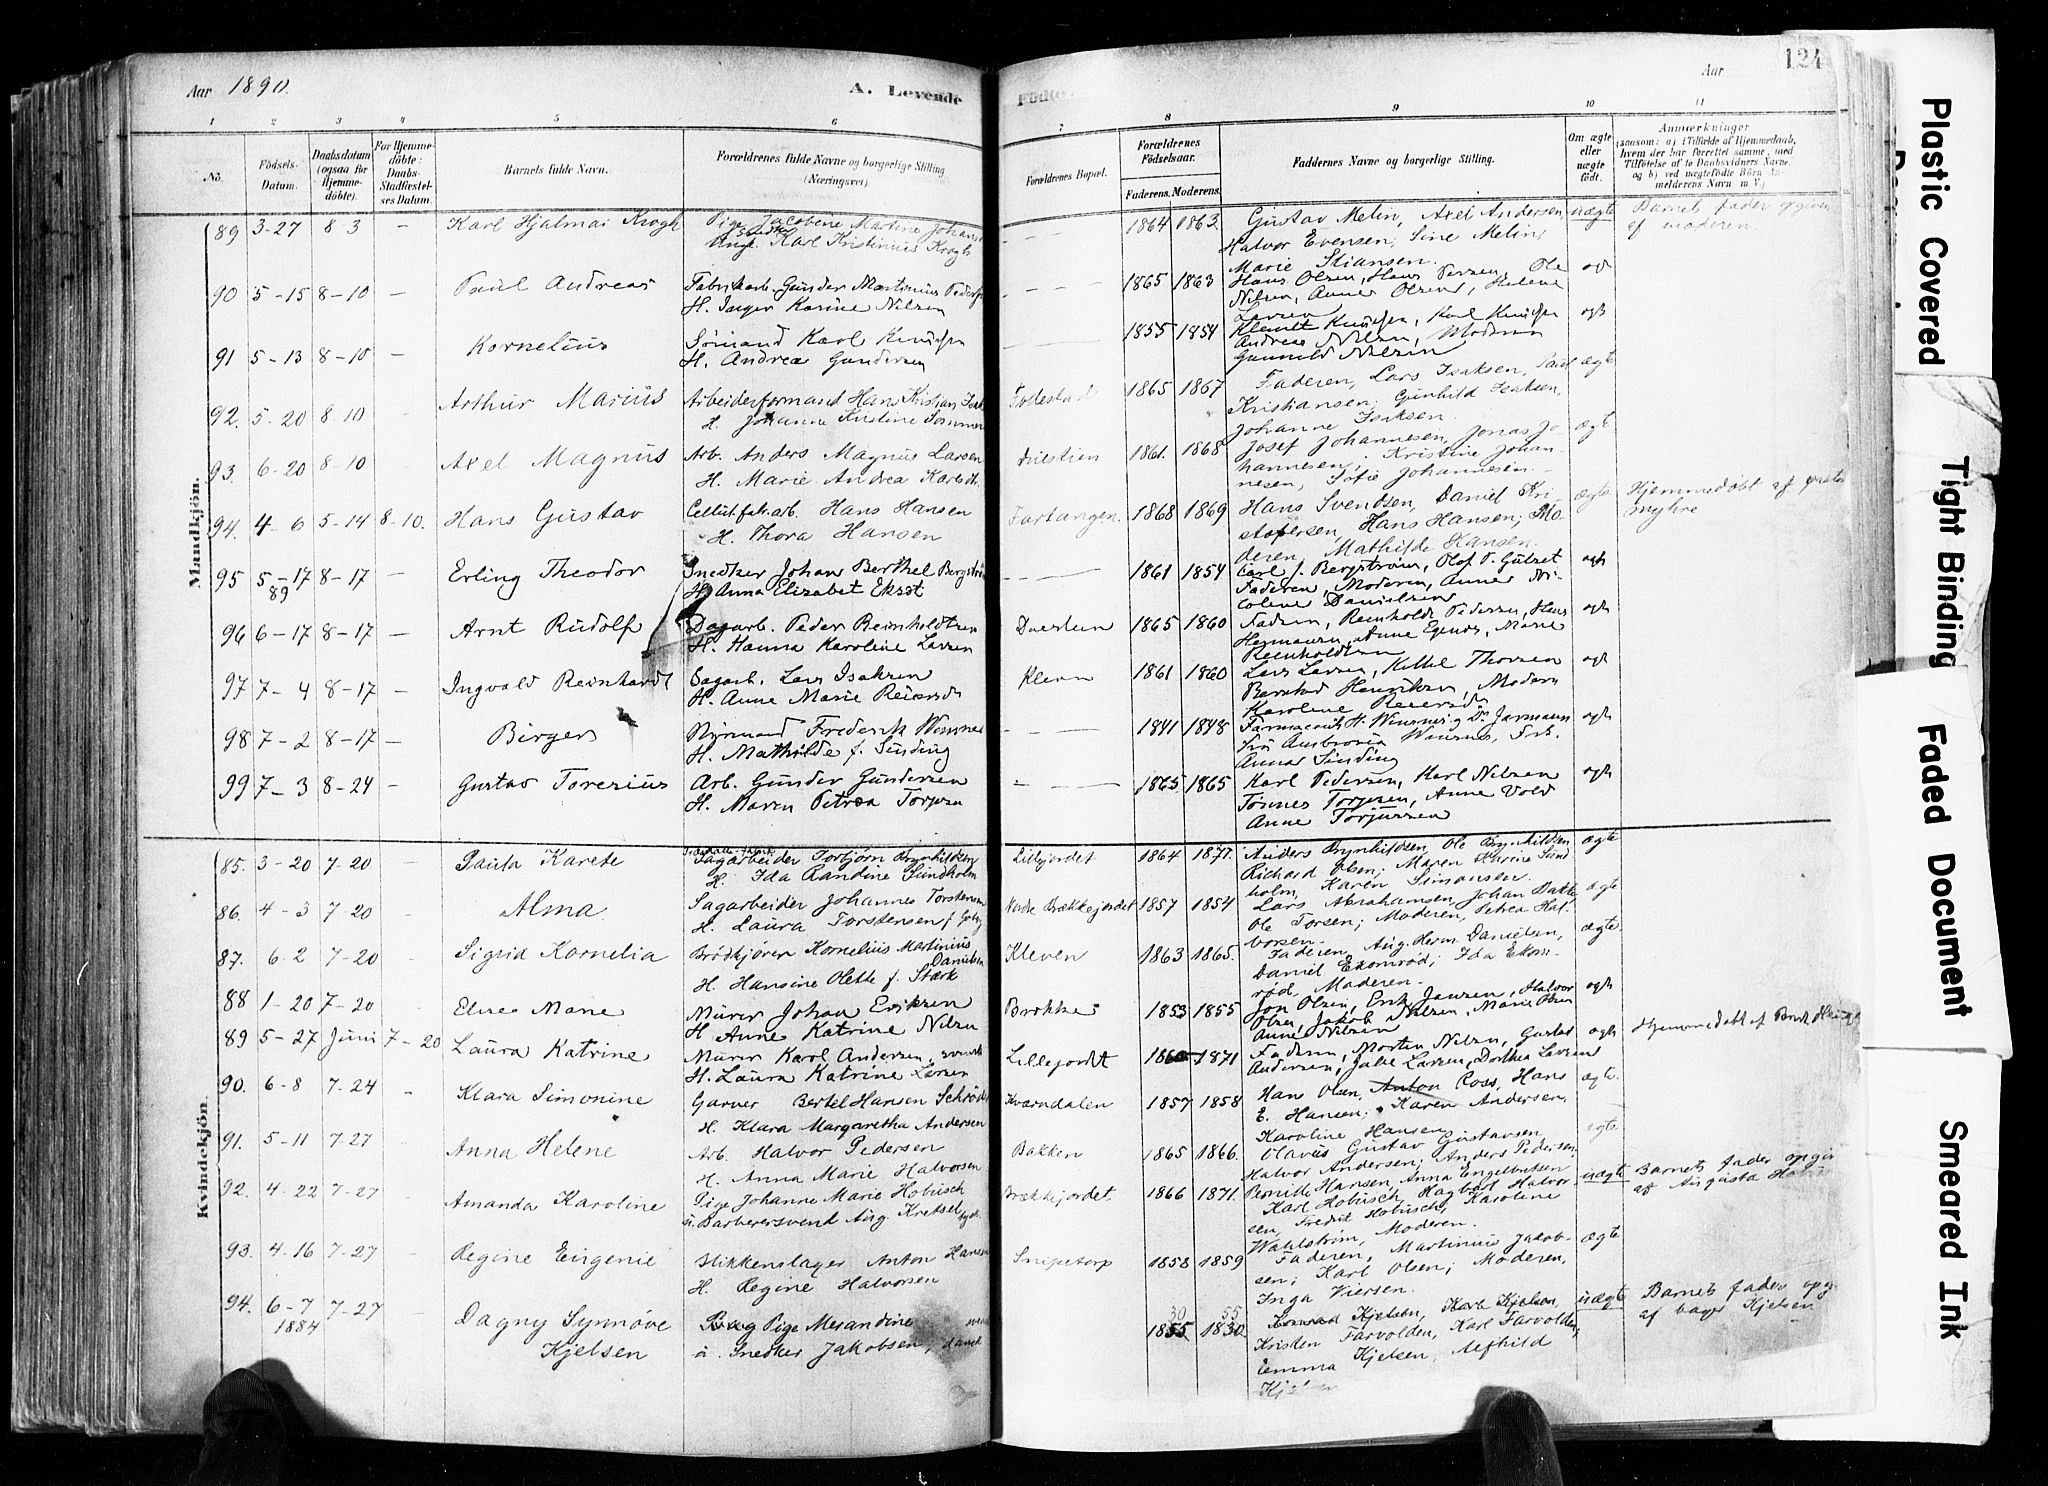 Aar 1890.
A. Levende
Födte.
Aar
124
1 2 3 4 5 6 7 8 9 10 11
No.
Födsels-Datum.
Daabsdatum (ogsaa for Hjemmedöbte).
For Hjemmedöbte: Daabs-Stadfæstelses Datum.
Barnets fulde Navn.
Forældrenes fulde Navne og borgerlige Stilling (Næringsvei)
Forældrenes Bopæl.
Forældrenes Födselsaar.
Faderens. Moderens.
Faddernes Navne og borgerlige Stilling.
Om ægte eller uægte födt.
Anmærkninger
(saasom: a) i Tilfælde af Hjemmedaab, hvem der har forrettet samme, med Tilföielse af to Daabsvidners Navne, og b) ved uægtefödte Börn Anmelderens Navn m. V.)
Mandkjön.
89 3-27 8 3 — Karl Hjalmar Krogh Pige Jacobene Martine Johans
Ungk. Karl Kristinius Krogh
1864 1863 Gustav Melin, Axel Andersen uægte Barnets fader opgiven
Halvor Evensen; Sine Melin, af moderen.
Marie Stiansen.
90 5-15 8-10 — Paul Andreas Fabrikarb. Gunder Martinius Peders
H. Inger Karine Nilsen
1865 1863 Hans Olsen, Hans Persen, Ole
Nilsen, Anne Olsen, Helene
Larsen
91 5-13 8-10 — Kornelius Sömand Karl Knudsen
H. Andrea Gundersen
1855 1854 Klemet Knudsen, Karl Knudsen ægte
Andreas Nilsen, Moderen
Gunnild Nilsen
92. 5-20 8 10 Arthur Marius Arbeiderformand Hans Kristian Isak
H. Johanne Kristine Sommer
Fodestad 1865 1867 Faderen, Lars Isaksen, Paul ægte
Kristiansen; Gunhild Isaksen,
Johanne Isaksen.
93. 6-20 8-10 Axel Magnus Arb. Anders Magnus Larsen
H. Marie Andrea
1861. 1868 Josef Johannesen, Jonas Jo- ægte
hannesen; Kristine Johan-
nesen, Sofie Johannesen.
94. 4-6 5-14 8-10. Hans Gustav Cellul.fab.arb. Hans Hansen
H. Thora Hansen
Tartangen 1868 1869 Hans Svendsen, Daniel Kri- ægte Hjemmedöbt af
stofersen, Hans Hansen; Mo- myhre
deren, Mathilde Hansen.
95 5-17 8-17 — Erling Theodor Snedker Johan Berthel Bergström
89 H. Anna Elizabet Ekrot
1861 1854 Carl J. Bergström, Olof P. Gulset ægte
Faderen, Moderen, Anne Ni-
coline Danielsen
96 6-17 8-17 — Arnt Rudolf Dagarb. Peder Reinholdtsen
H. Hanna Karoline Larsen
1865 1860 Fadren, Reinholdt Pedersen, Hans ægte
Hermansen, Anne Egenæs, Marie
Reinholdtsen
97 7-4 8-17 — Ingvald Reinhardt Sagarb. Lars Isaksen
H. Anne Marie Reiersdt
Kleven 1861 1860 Lars Larsen, Kittel Thorsen ægte
Berntad Henriksen, Moderen
Karoline Reiersdt
98 7-2 8-17 — Birger Styrmand Frederik Wensnes
H. Mathilde f. Sinding
1841 1848 Farmaceut H. Wensnes, Dr. Jarmann ægte
Fru Ambrosia Wensnes, Frk.
Anna Sinding
99 7-3 8-24 — Gustav Toresius Arb. Gunder Gundersen
H. Maren Petrea Torjusen
1865 1865 Karl Pedersen, Karl Nilsen ægte
Tönnes Torjusen, Anne Vold
Anne Torjussen
Kvindekjön.
85. 3-20 7-20 Paula Karete Sagarbeider Torbjörn Brynhildsen
H. Ida Randine Sundholm
Lillejordet 1864 1871. Anders Brynhildsen, Ole Brynhildsen ægte
Richard Olsen; Maren Karine Sund-
holm, Karen Simonsen.
86. 4-3 7-20 Alma. Sagarbeider Johannes Torstensen
H. Laura Torstensen f.
Nordre Brækkejordet 1857 1854 Lars Abrahamsen, Johan Bakke, ægte
Ole Torsen; Moderen, Petrea Hal-
vorsen.
87. 6-2 7-20 Sigrid Kornelia Brödkjörer Kornelius Martinius
Danielsen
H. Hansine Olette f. Stærk
Kleven 1863 1865. Faderen, Aug. Herm. Danielsen, ægte.
Daniel Ekornröd; Ida Ekorn-
röd, Moderen.
88 1-20 7-20 Elne Marie Murer Johan Eriksen
H. Anne Katrine Nilsen
Brekke 1853 1855 Jon Olsen, Erik Jansen, Halvor ægte
Olsen, Jakob Nielsen, Marie Olsen
Anne Nilsen
89 5-27 Juni 7-20 Laura Katrine Murer Karl Andersen, svensk
H. Laura Katrine Larsen
Lillejordet 1871 Faderen, Morten Nilsen, Gustav ægte Hjemmedöbt af
Andersen, Julie Larsen, Dorthea Larsen
90. 6-8 7-24 Klara Simonine Garver Bertel Hansen Schröder
H. Klara Margaretha Andersen
Kværndalen 1857 1858 Hans Olsen, Anton Ross, Hans ægte.
E. Hansen; Karen Andersen,
Karoline Hansen
91. 5-11 7-27 Anna Helene Arb. Halvor Pedersen
H. Anna Marie Halvorsen
Bakken 1865 1866. Olavus Gustav Gustavsen ægte
Halvor Andersen; Anders Pedersen,
Pernille Hansen, Anna Engelbretsen
92. 4-22 7-27 Amanda Karoline Pige Johanne Marie Hobisch
u. Barberersvend Aug. Kretsel tydsk
Brækkejordet. 1866 1871. Karl Hobisch, Hagbart Halvor- uægte Barnets fader opgiv
sen, Fredrik Hobisch, Karoline af Augusta
Wahlström, Moderen.
93. 4-16 7-27 Regine Eugenie Blikkenslager Anton Hansen
H. Regine Halvorsen
Snipetorp 1858 1859 Faderen, Martinius Jakob- ægte
sen; Karl Olsen; Moderen,
Inga Viersen.
94. 6-7 7-27 Dagny Synnöve Pige Mesandine
1884 Kjelsen u. Snedker Jakobsen, dansk
30 55
1855 1830 Konrad Kjelsen, Karl Kjelsen uægte Barnets fader opg.
Kristen Farvolden, Karl Farvolden; af Kjelsen
Emma Kjelsen, Alfhild
Plastic Covered
Tight Binding
Faded Document
Smeared Ink